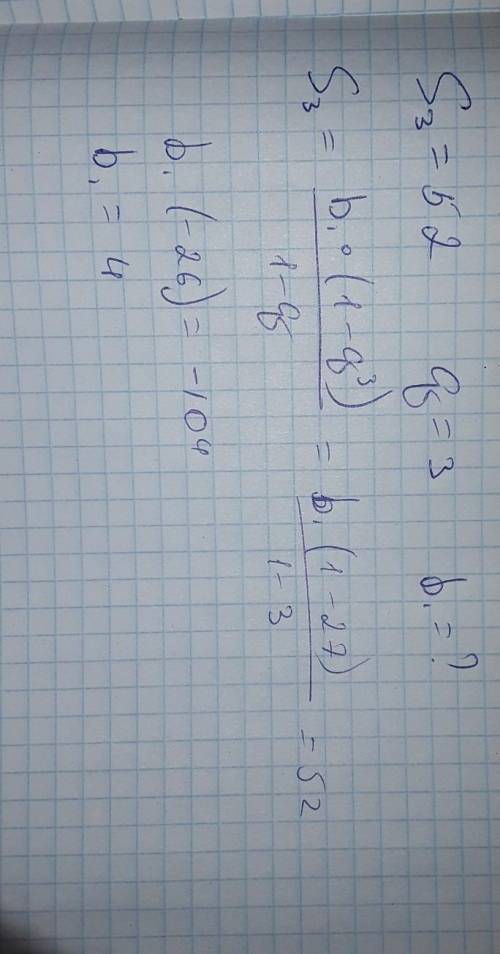 S₃ = 52 q = 3 b₁ = ?
S₃ = b₁ · (1 - q³) / 1 - q = b₁ (1 - 27) / 1 - 3 = 52
b₁ (-26) = -104
b₁ = 4